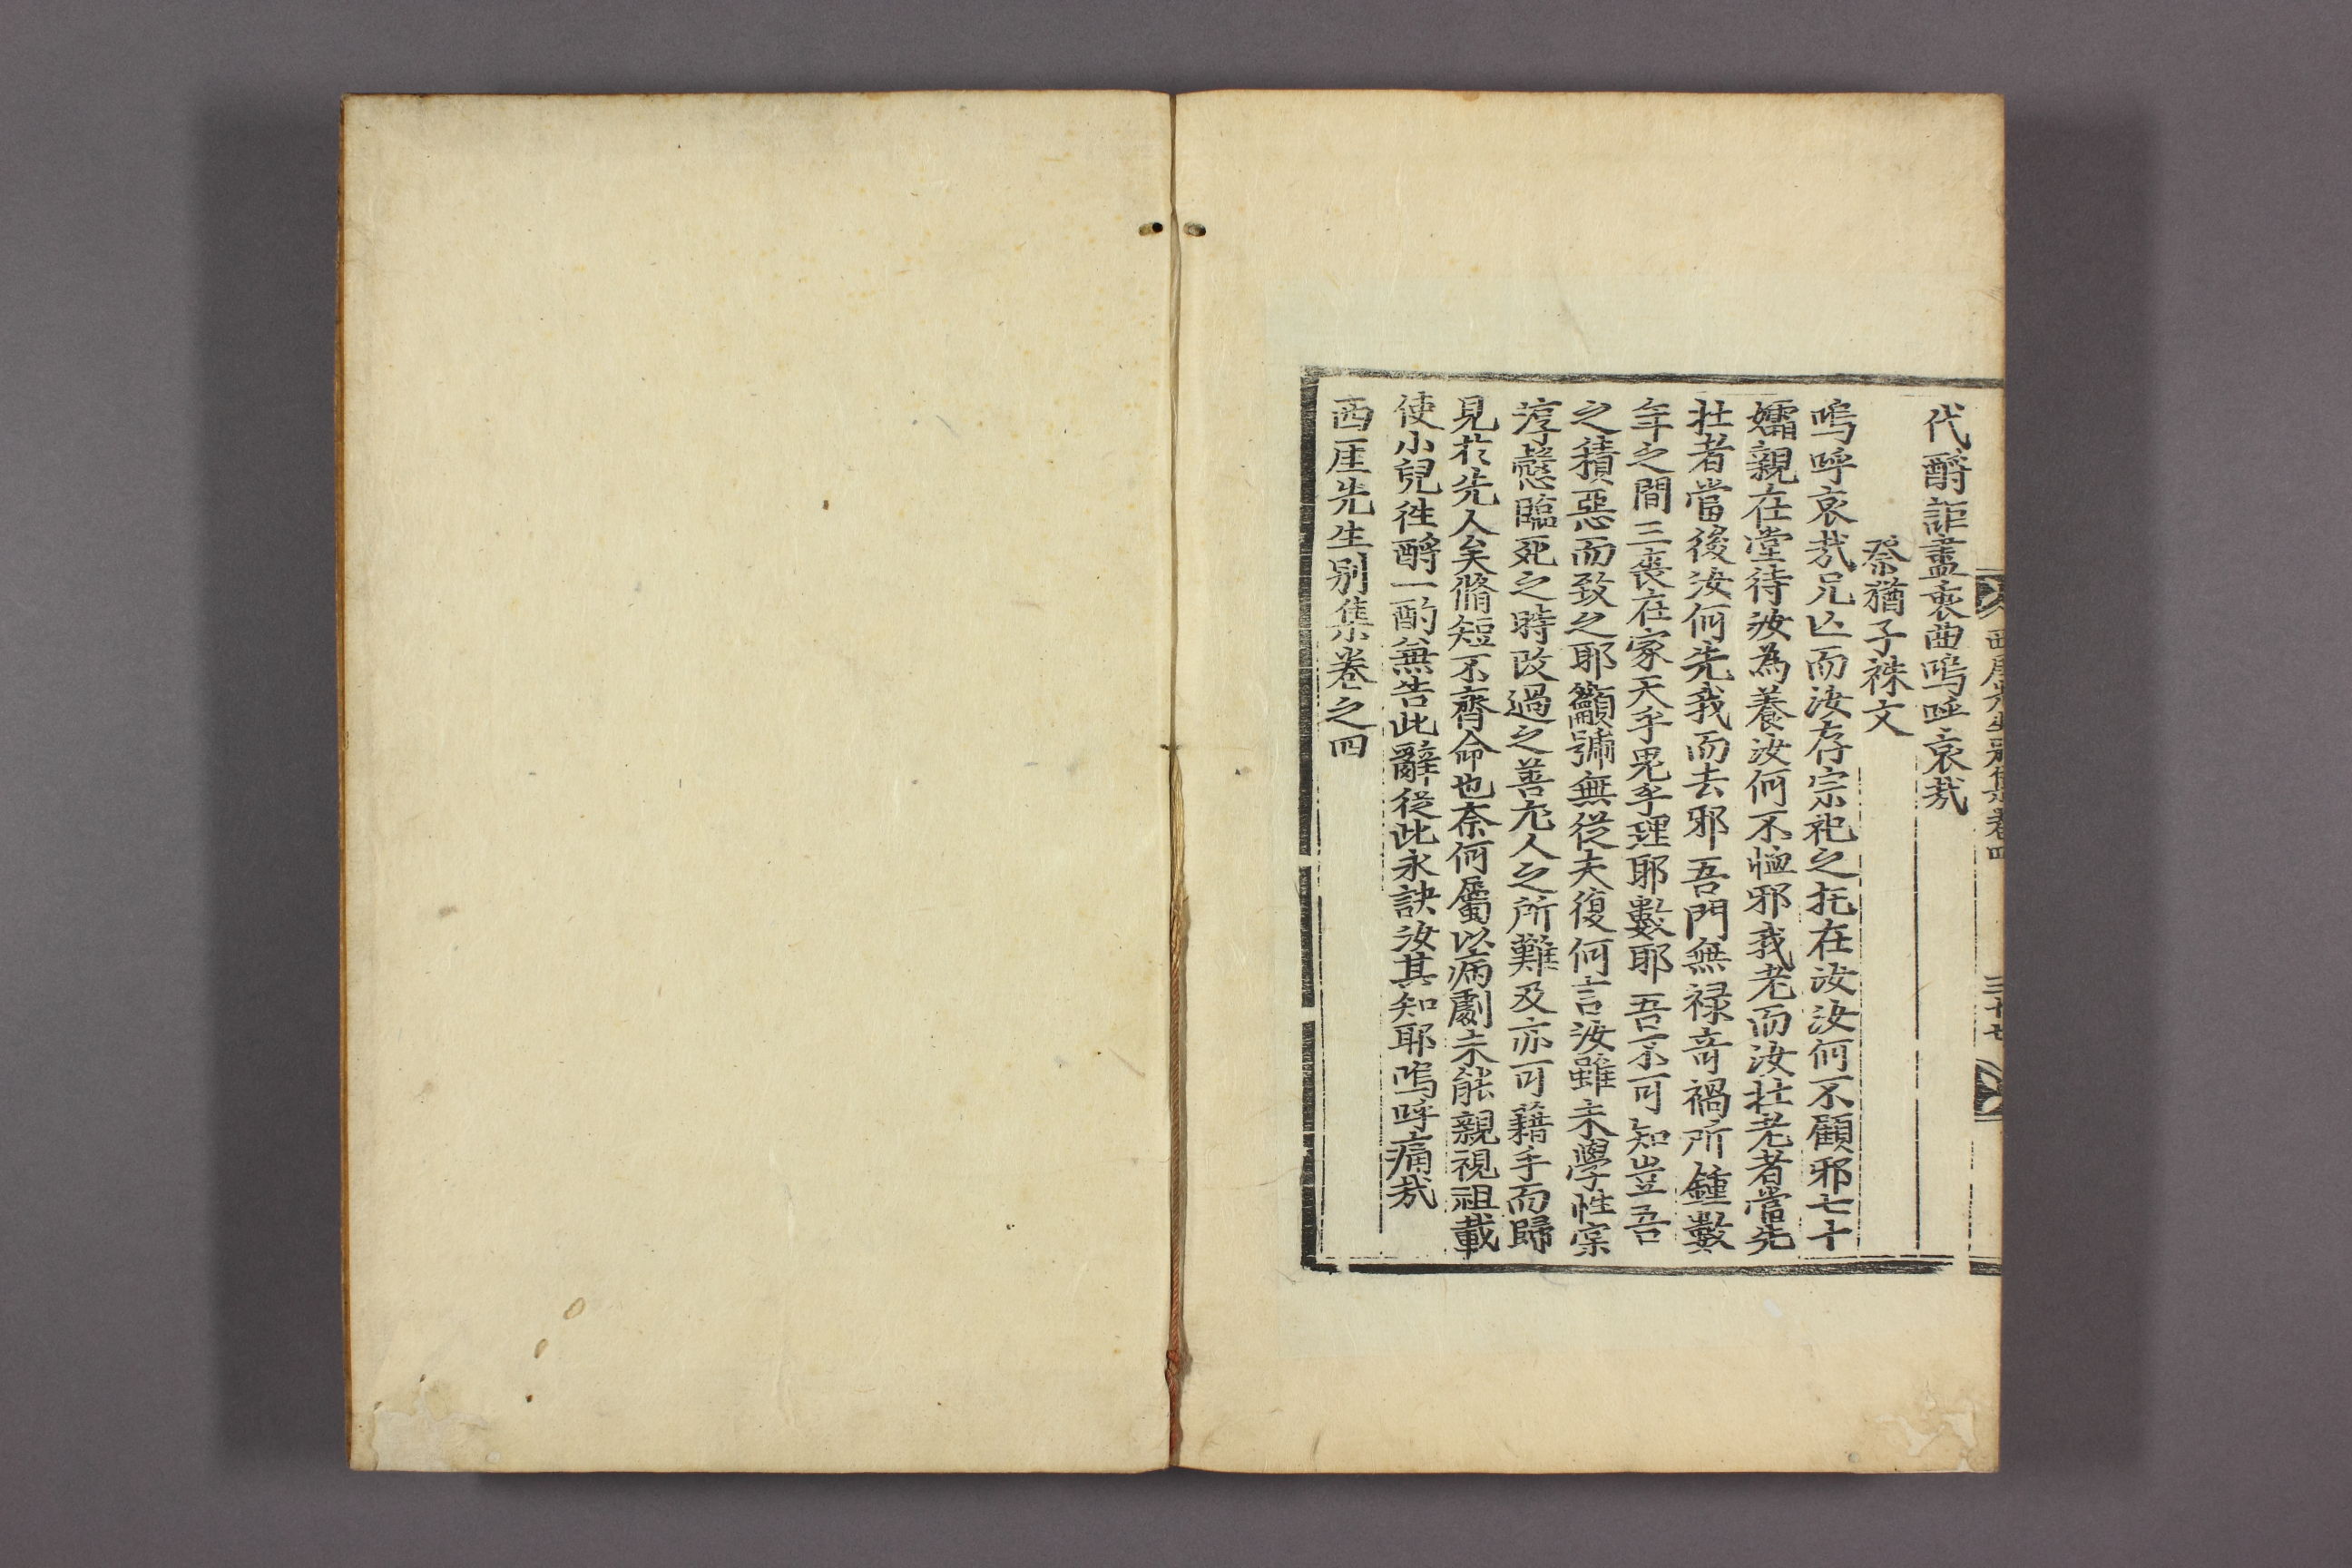 西厓先生別集卷四 三十七
代酹詎盡衷曲嗚呼哀㢤
祭猶子裿文
嗚呼哀㢤兄亾而汝存宗祀之托在汝汝何不顧邪七十
孀親在堂待汝為養汝何不恤邪我老而汝壯老者當先
壯者當後汝何先我而去邪吾門無祿竒禍所鍾數
年之間三喪在家天乎鬼乎理耶數耶吾不可知豈吾
之積惡而致之耶籲號無從夫復何言汝雖未學性寔
淳慤臨死之時改過之善尤人之所難及亦可藉手而歸
見於先人矣脩短不齊命也奈何屬以病劇未能親視祖載
使小兒徃酹一酌兼告此辭從此永訣汝其知耶嗚呼痛㢤
西厓先生別集卷之四